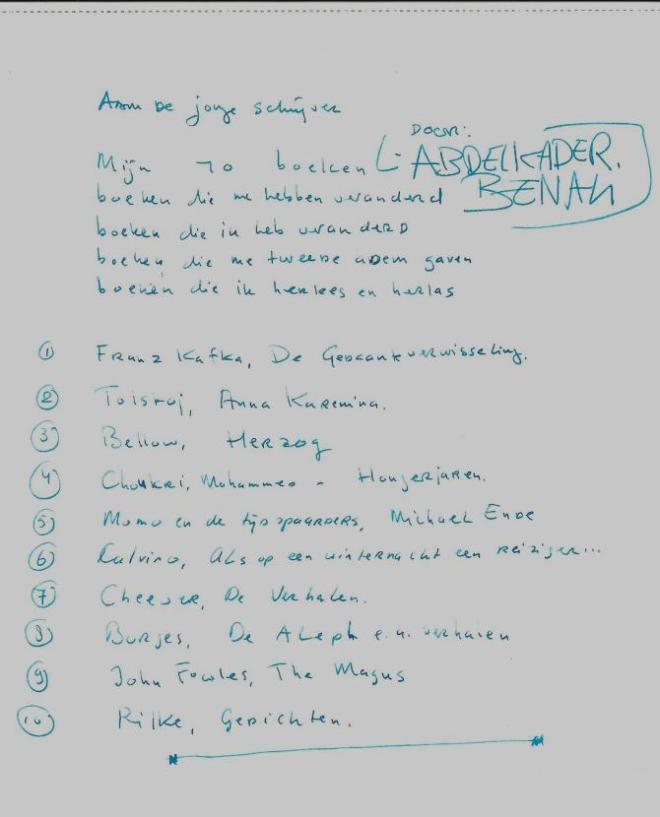 Aan de jonge schrijver
Door:
Mijn 10 boeken ABDELKADER.
BENALI
boeken die me hebben veranderd
boeken die ik heb veranderd
boeken die me tweede adem gaven
boeken die ik herlees en herlas
1 Franz Kafka, De Gedaanteverwisseling.
2 Tolstoj, Anna Karenina.
3 Bellow, Herzog
4 Choukri, Mohammed - Hongerjaren.
5 Momo en de tijdspaarders, Michael Ende
6 Calvino, Als op een winternacht een reiziger...
7 Cheever, De Verhalen.
8 Borges, De Aleph e.a. verhalen
9 John Fowles, The Magus
10 Rilke, Gedichten.